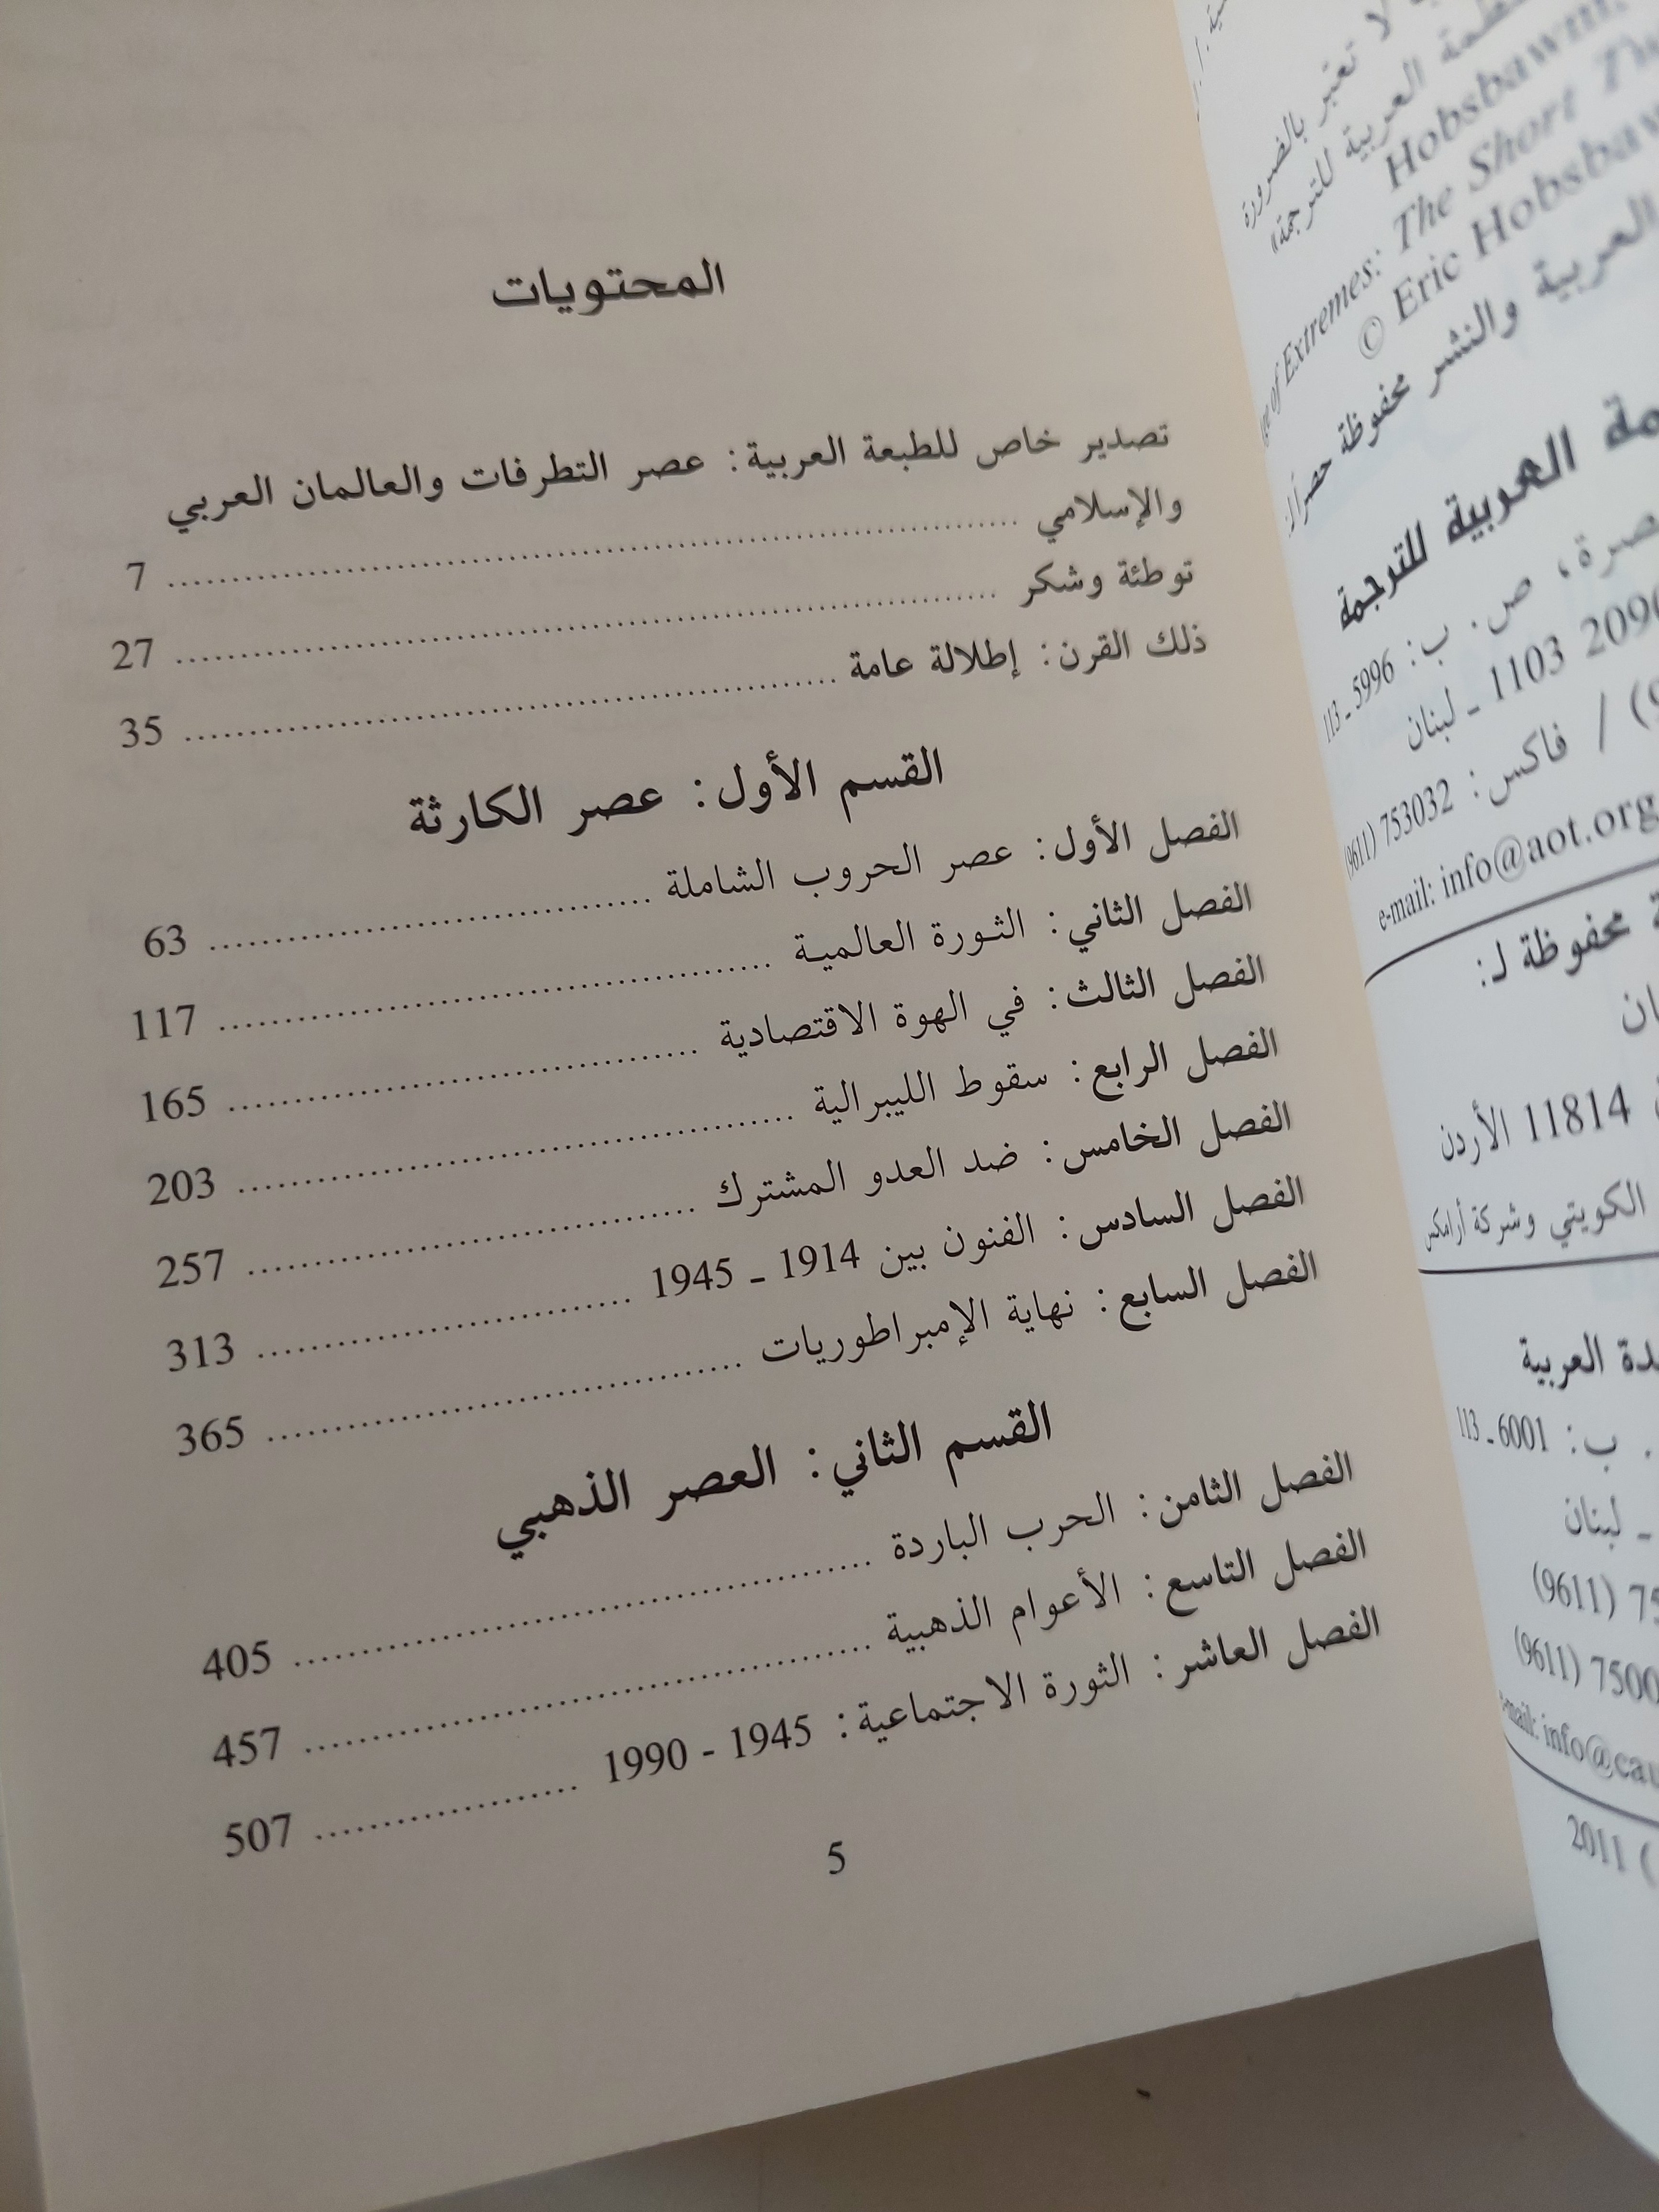 المحتويات
تصدير خاص للطبعة العربية: عصر التطرفات والعالمان العربي
والإسلامي ........ 7
توطئة وشكر ........ 27
ذلك القرن: إطلالة عامة ........ 35
القسم الأول: عصر الكارثة
الفصل الأول: عصر الحروب الشاملة ........ 63
الفصل الثاني: الثورة العالمية ........ 117
الفصل الثالث: في الهوة الاقتصادية ........ 165
الفصل الرابع: سقوط الليبرالية ........ 203
الفصل الخامس: ضد العدو المشترك ........ 257
الفصل السادس: الفنون بين 1914 ـ 1945 ........ 313
الفصل السابع: نهاية الإمبراطوريات ........ 365
القسم الثاني: العصر الذهبي
الفصل الثامن: الحرب الباردة ........ 405
الفصل التاسع: الأعوام الذهبية ........ 457
الفصل العاشر: الثورة الاجتماعية: 1945 - 1990 ........ 507
5
لا تعتبر بالضرورة
العربية للترجمة»
Hobsbawm,
of Extremes: The Short
© Eric Hobsbawm
العربية والنشر محفوظة حصراً
العربية للترجمة
ص. ب: 5996 ـ 113
1103 ـ لبنان
/ فاكس: 753032 (9611)
e-mail: info@aot.org
محفوظة لـ:
11814 الأردن
الكويتي وشركة أرامكس
العربية
ب: 6001 ـ 113
ـ لبنان
(9611)
(9611)
info@
2011